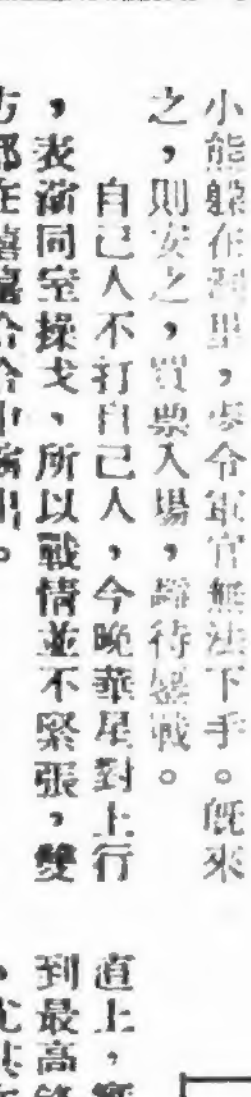 小熊躲在洞里,步令軍官無法下手。旣來
之,則安之,買票入場,靜待鏖戰。
自己人不打自己人,今晚華星對上行
,表演同室操戈,所以戰情並不緊張,雙
方都在嘻嘻哈哈中演出。
直上,
到最高